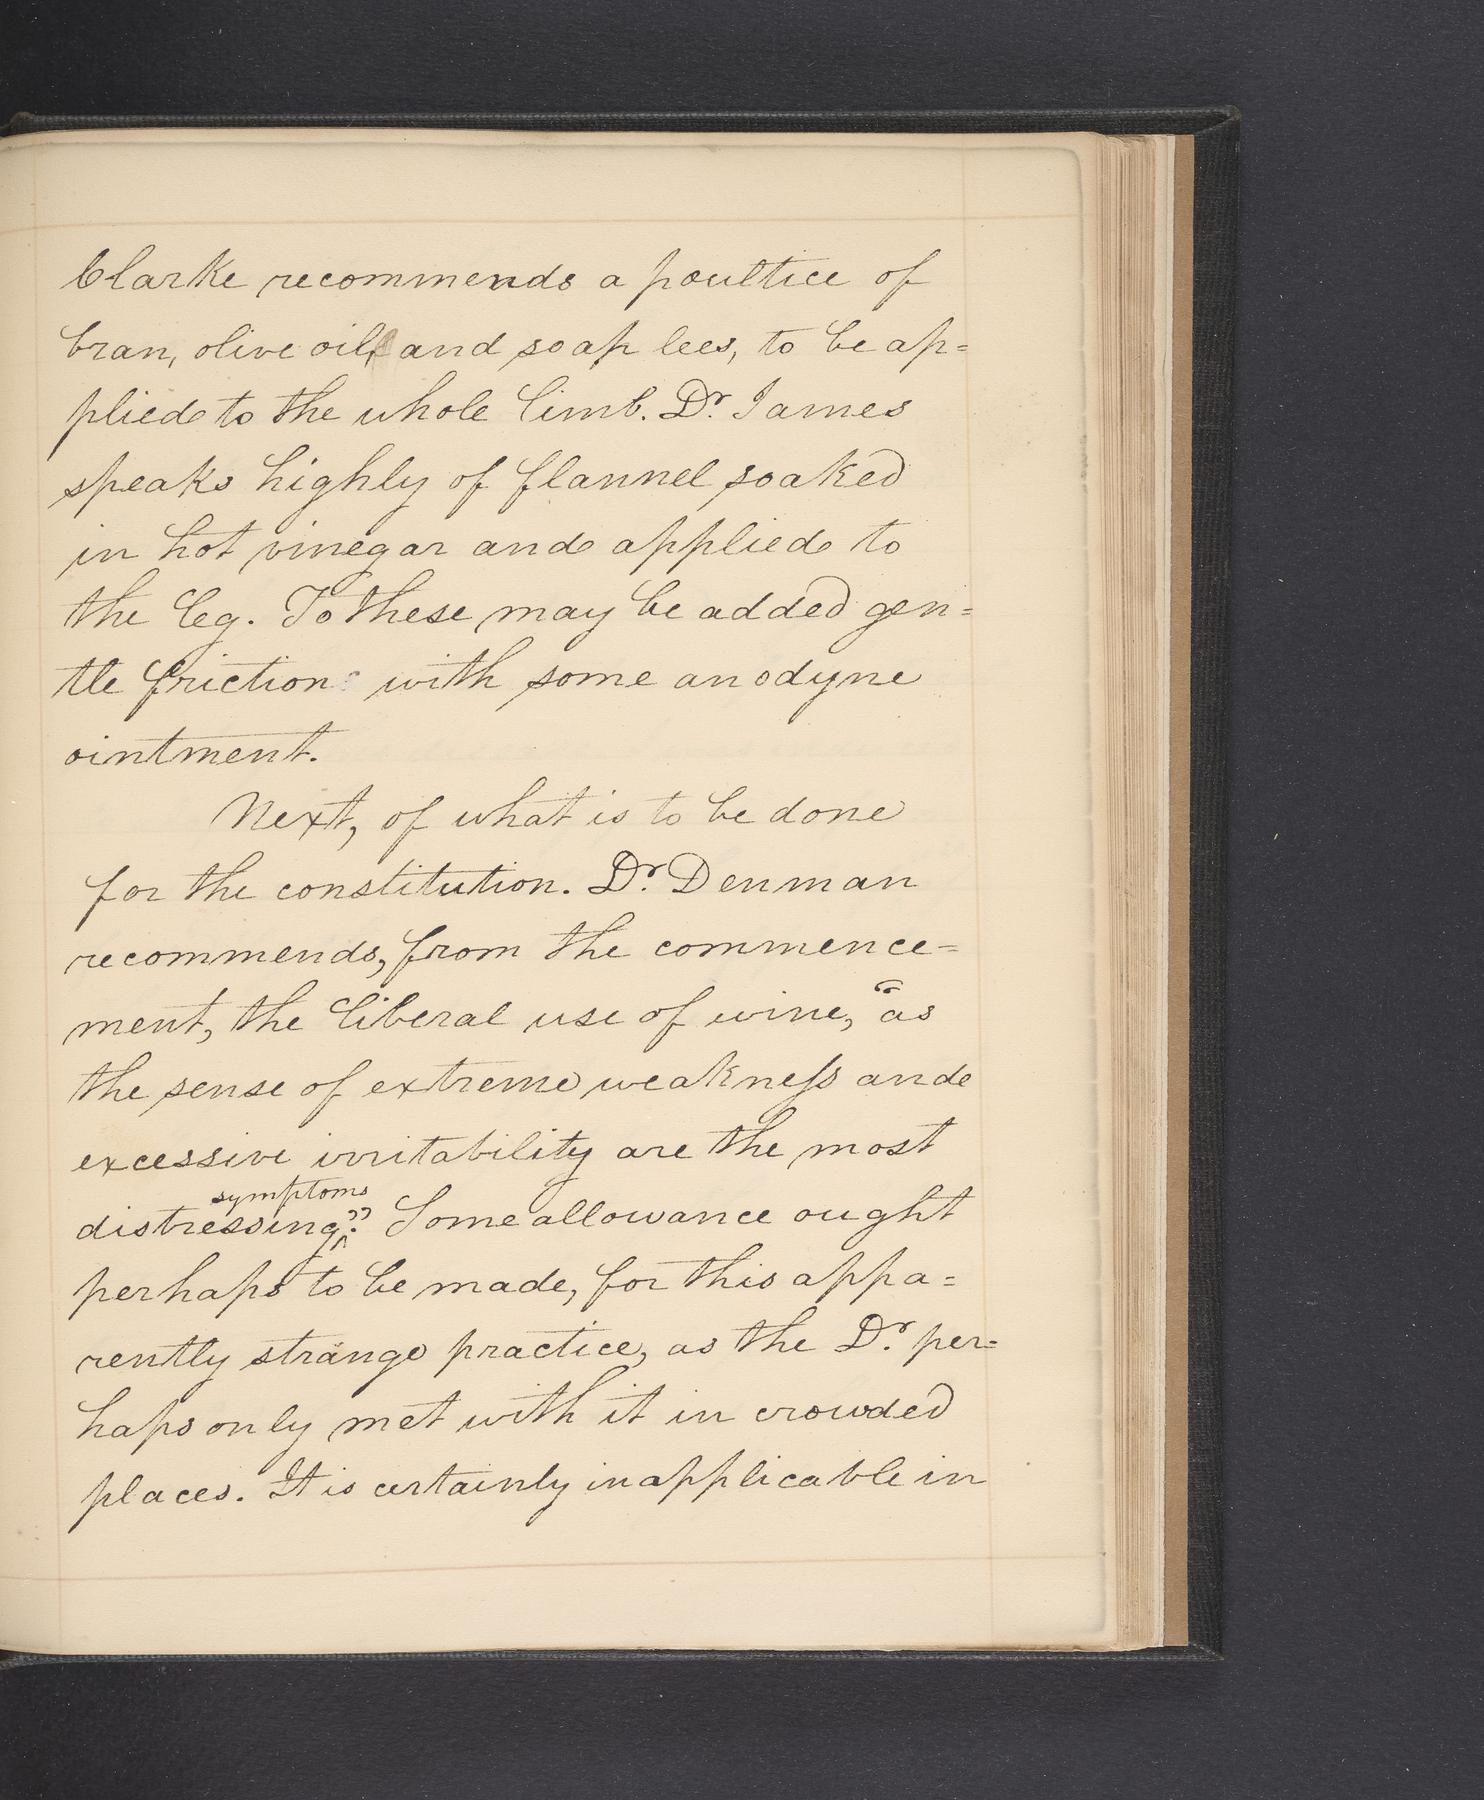 Clarke recommends a poultice of
bran, olive oil, and soap lees, to be ap=
plied to the whole limb. Dr. James
speaks highly of flannel soaked
in hot vinegar and applied to
the leg. To these may be added gen=
tle friction with some anodyne
ointment.
Next, of what is to be done
for the constitution. Dr. Denman
recommends, from the commence=
ment, the liberal use of wine, "as
the sense of extreme weakness and
excessive irritability are the most
symptoms
distressing." Some allowance ought
perhaps to be made, for this appa=
rently strange practice, as the Dr. per=
haps only met with it in crowded
places. It is certainly inapplicable in